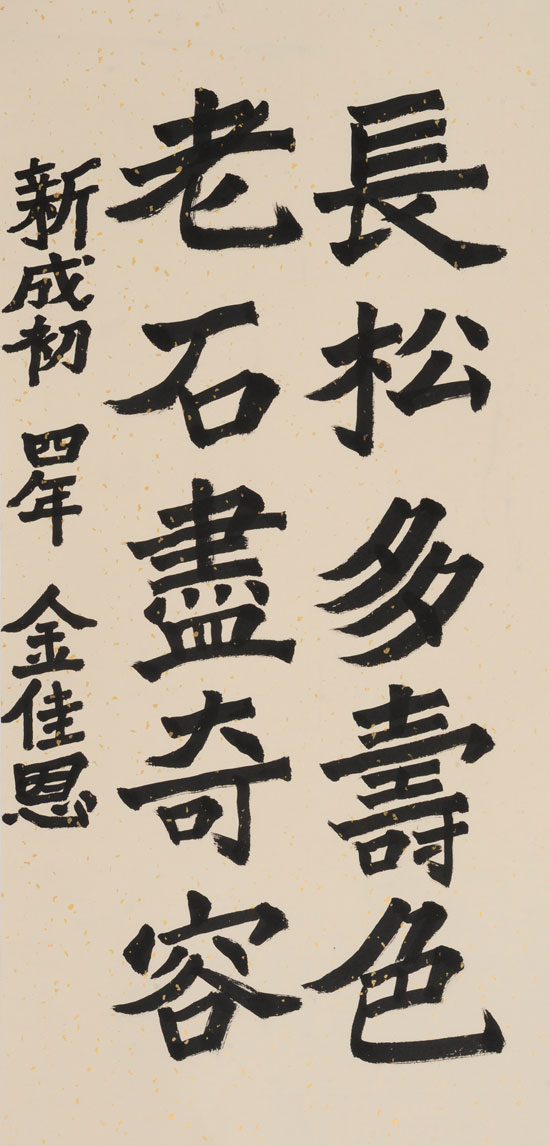 長松多壽色
老石盡奇容
新成初 四年 金佳恩